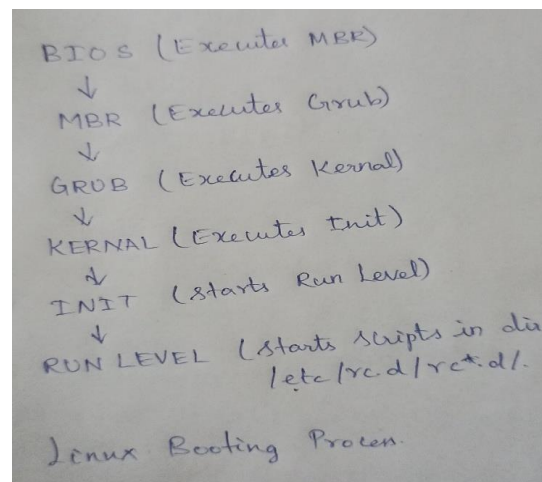 BIOS (Executes MBR)
↓
MBR (Executes Grub)
↓
GRUB (Executes Kernal)
↓
KERNAL (Executes Init)
↓
INIT (Starts Run Level)
↓
RUN LEVEL (Starts scripts in dir
/etc/rc.d/rc*.d/.
Linux Booting Process.